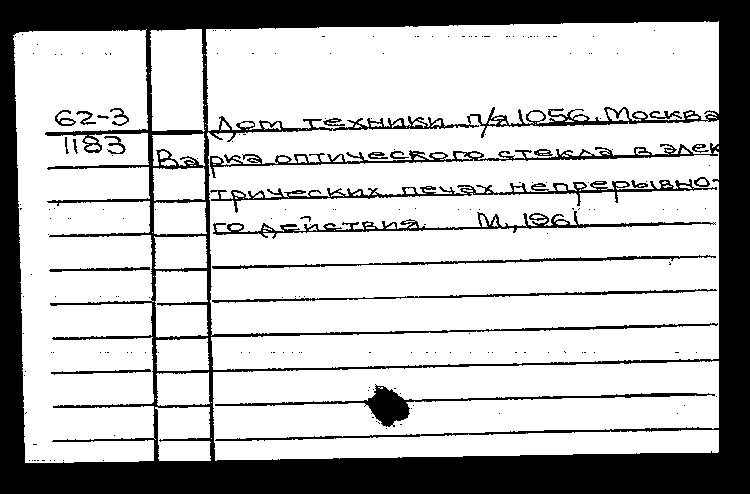 62-3
Дом техники п/я 1056. Москва
1183
Варка оптического стекла в элек
трических печах непрерывно-
го действия. М., 1961